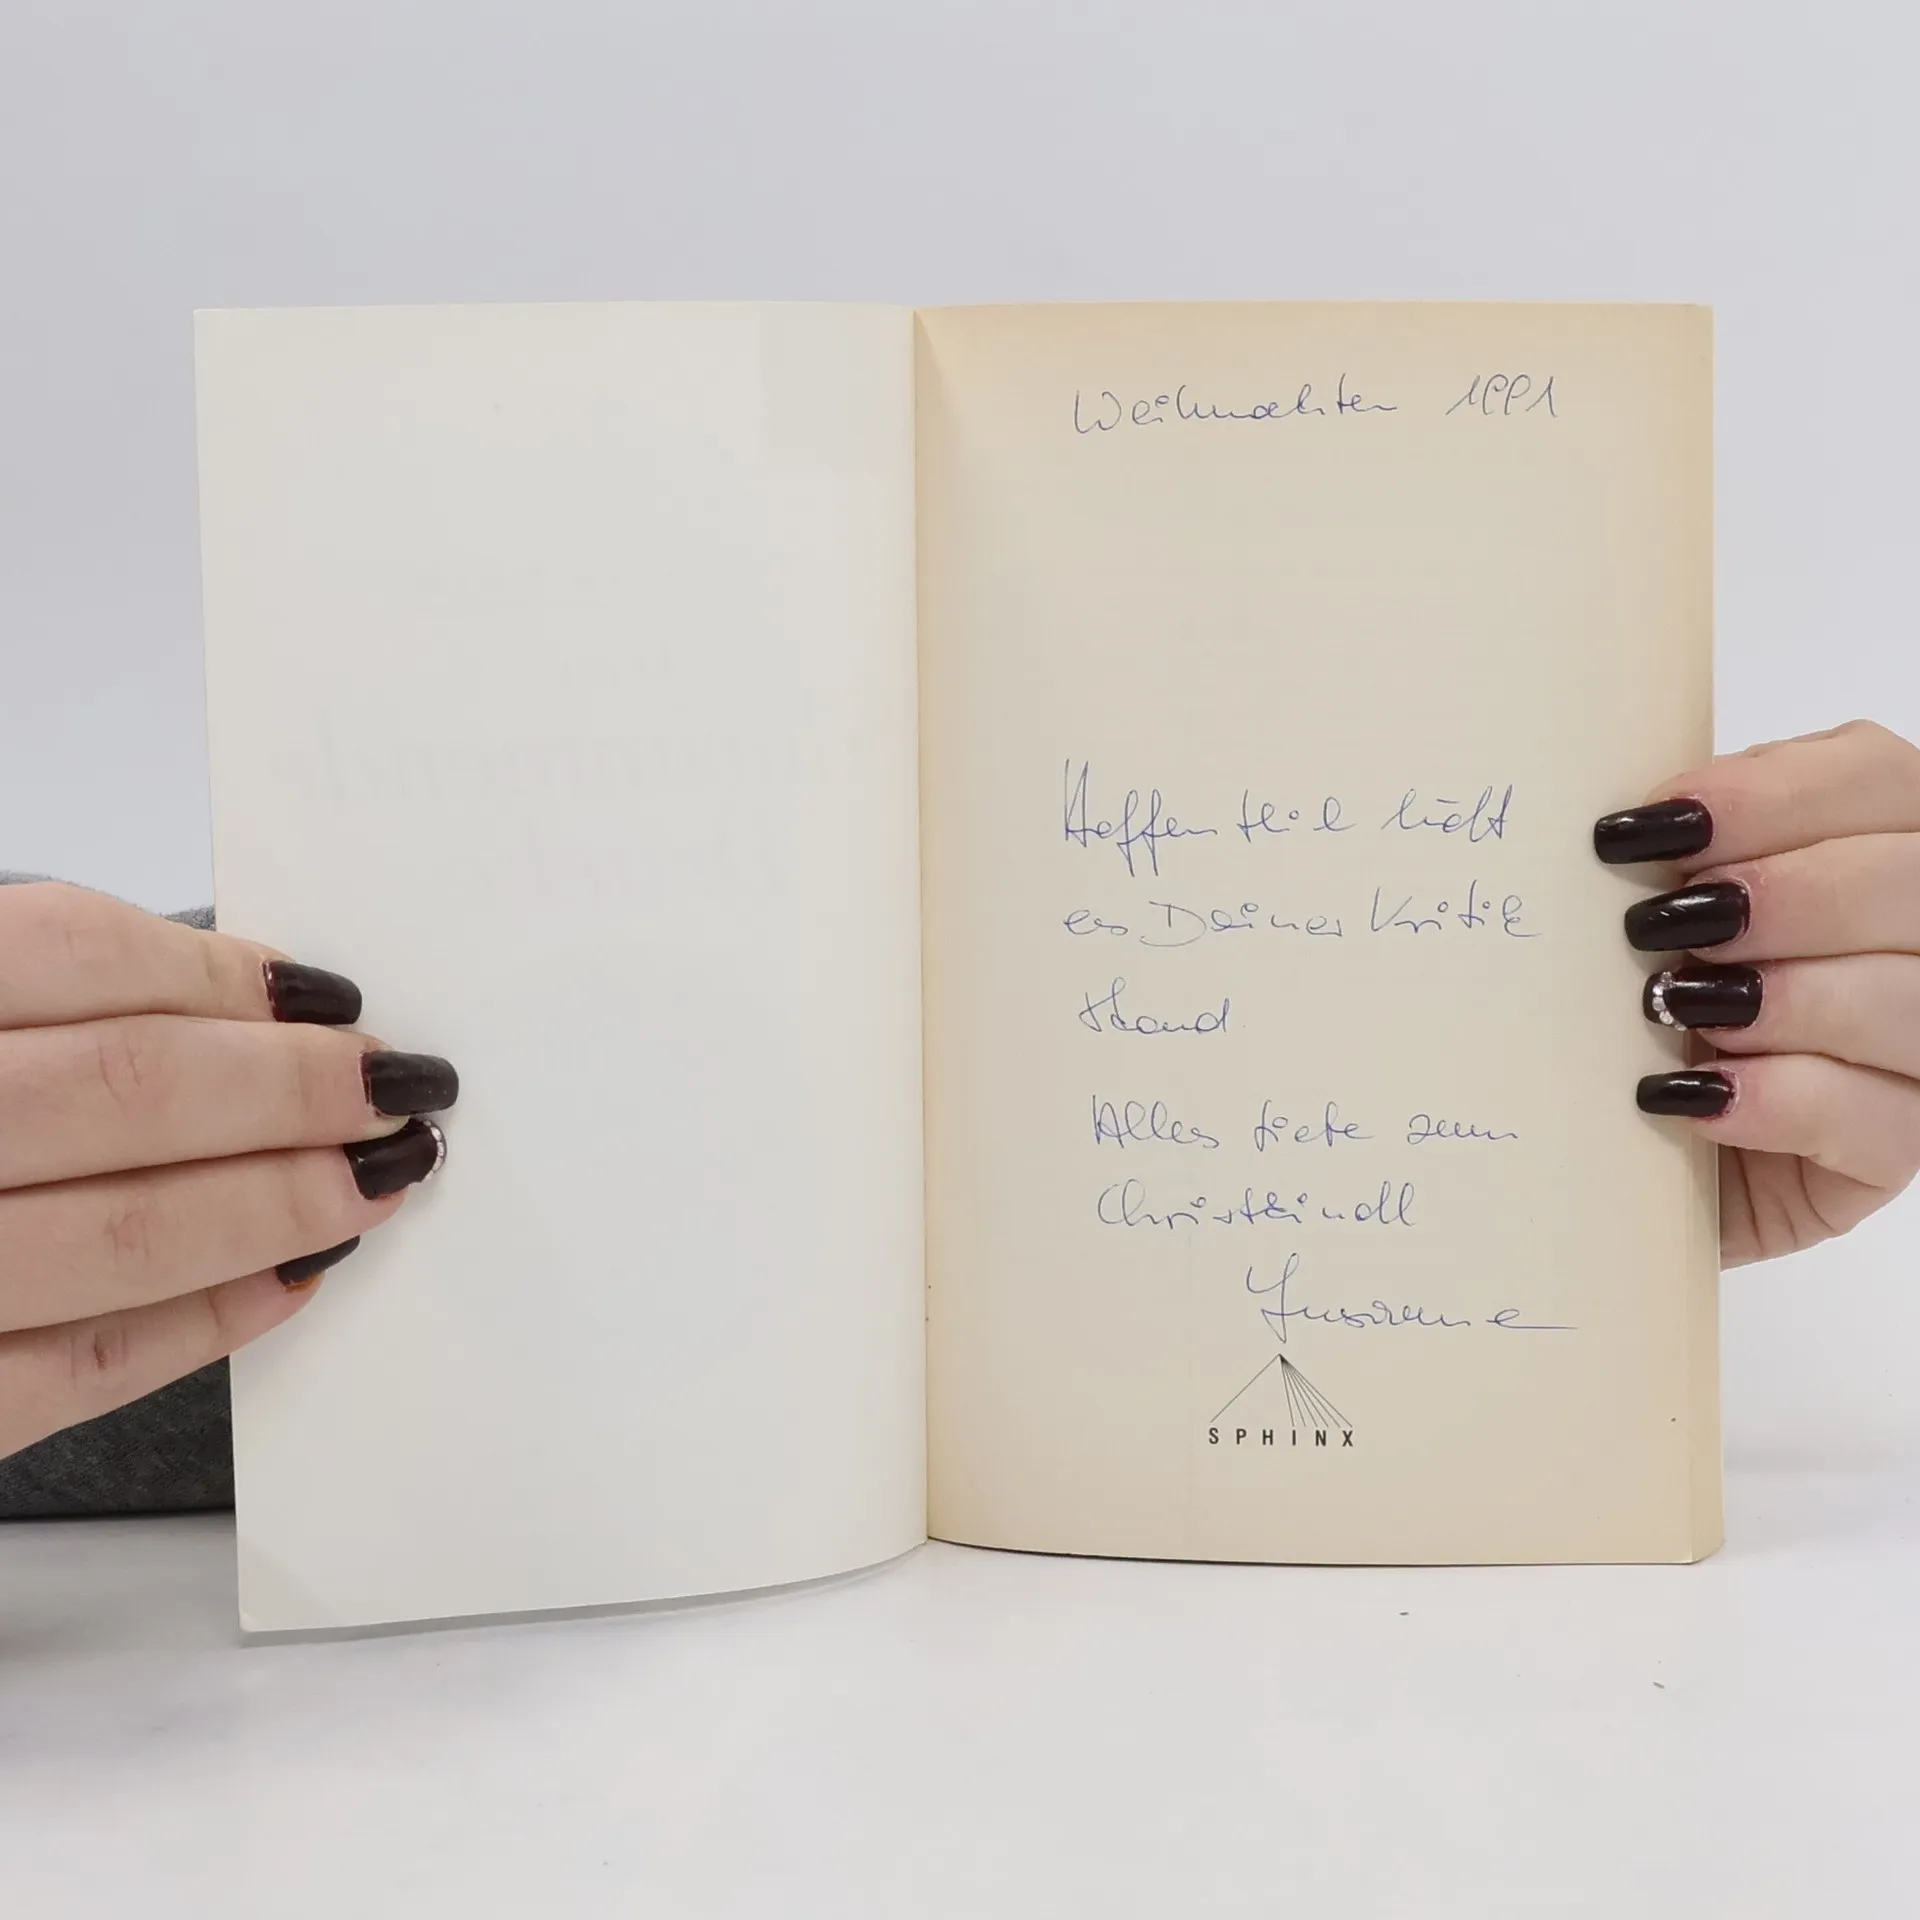 Weihnachten 1991
Hoffentlich hält
es Deiner Kritik
stand
Alles Liebe zum
Christkindl
Susanne
SPHINX